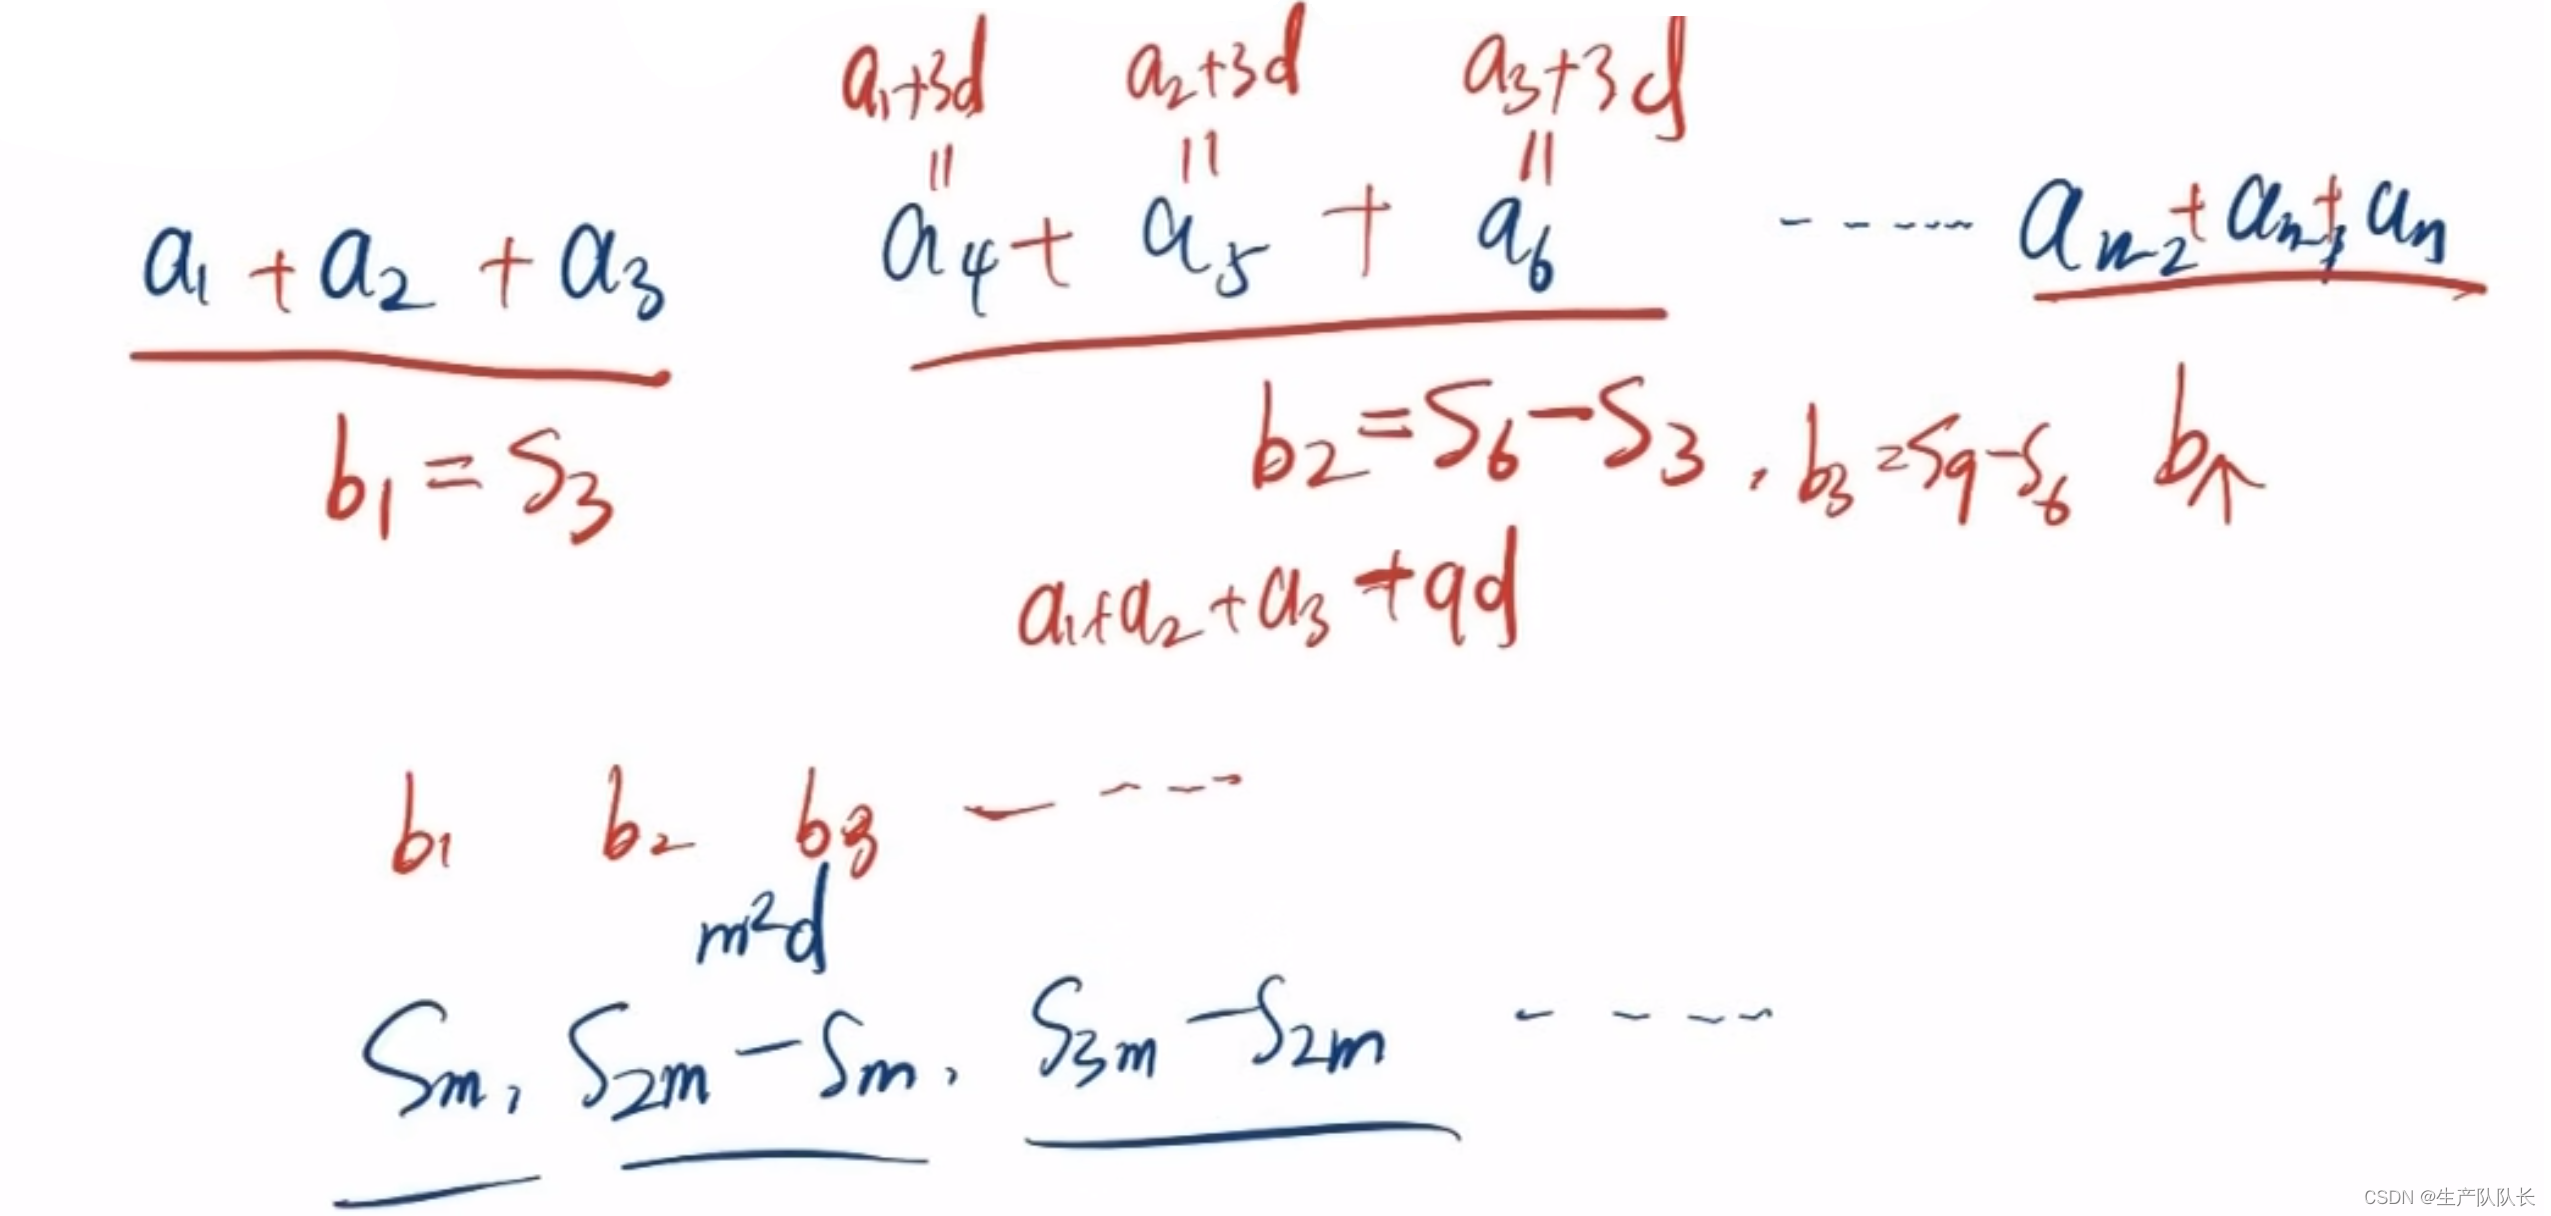 a₁+3d a₂+3d a₃+3d
|| || ||
a₁ + a₂ + a₃ a₄ + a₅ + a₆ ----- aₙ₋₂ + aₙ₋₁ + aₙ
b₁ = S₃ b₂ = S₆ - S₃ , b₃ = S₉ - S₆ b
a₁+a₂+a₃+9d
b₁ b₂ b₃ ----
m²d
Sₘ, S₂ₘ - Sₘ, S₃ₘ - S₂ₘ ----
CSDN @生产队队长